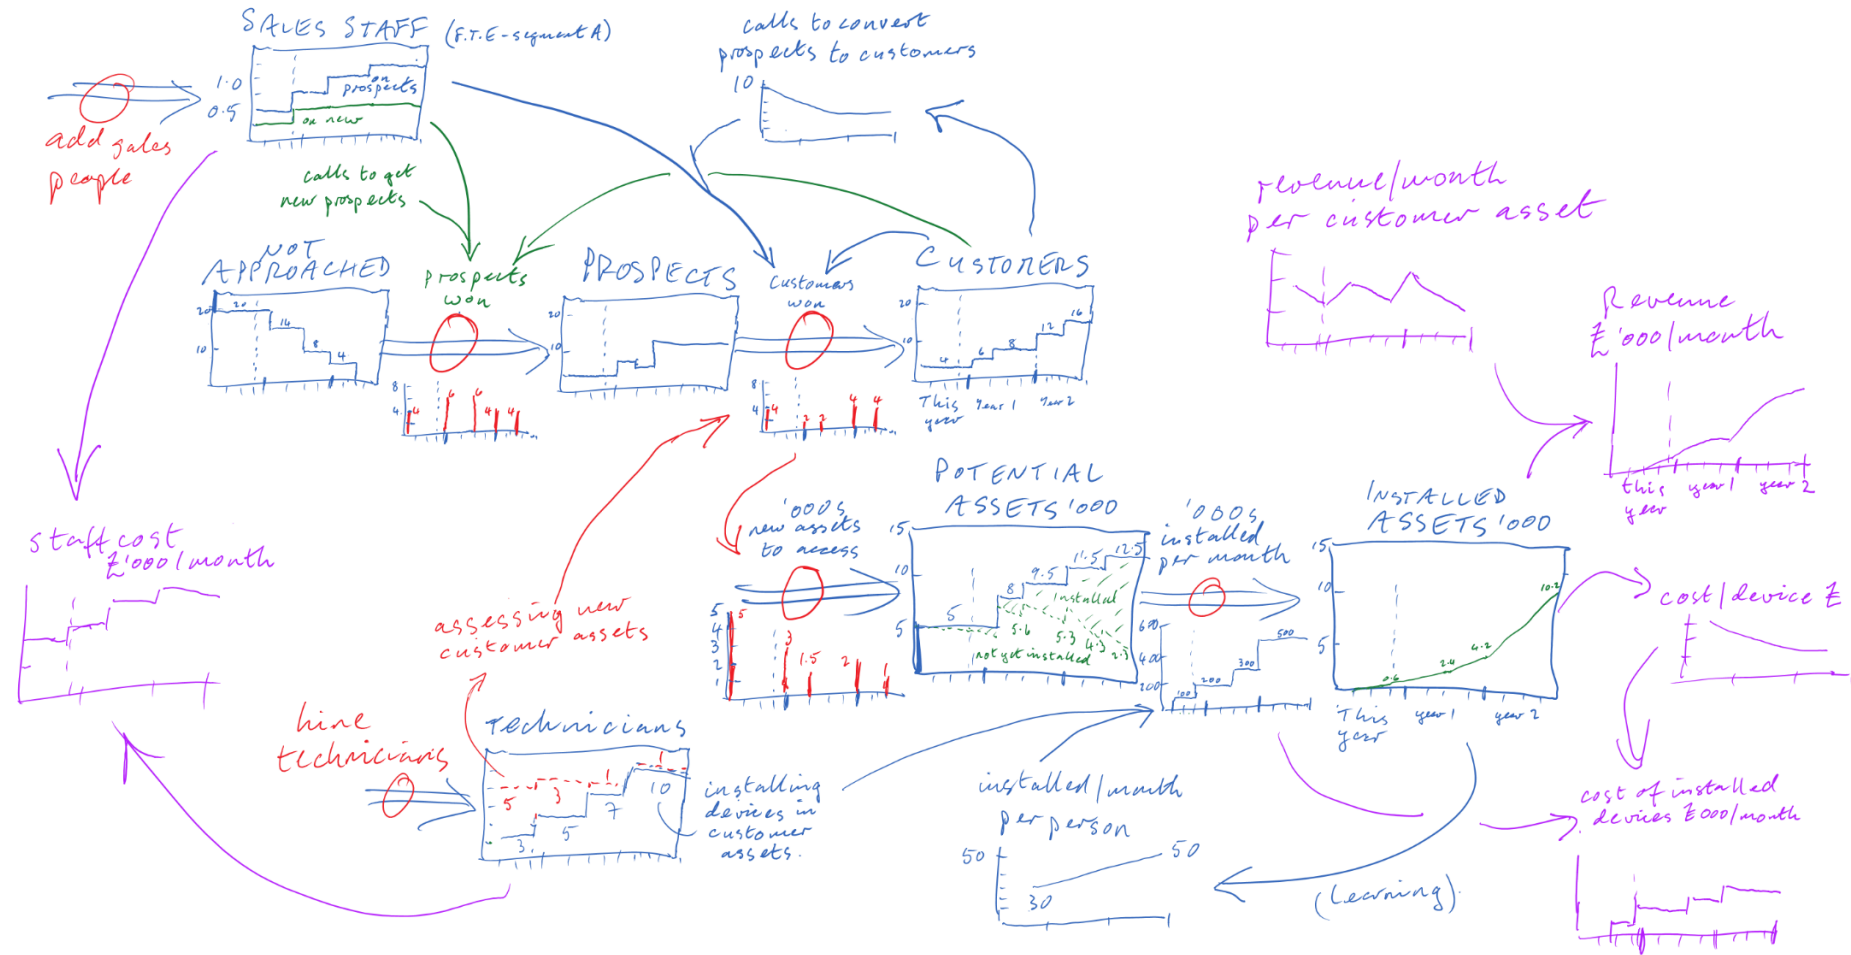 SALES STAFF (F.T.E-segment A)
1.0
0.5
on
prospects
on new
add sales
people
calls to convert
prospects to customers
10
calls to get
new prospects
NOT
APPROACHED
20
10
20
14
8
4
prospects
won
8
4
4
6
6
4
4
PROSPECTS
20
10
customers
won
8
4
4
2
2
4
4
CUSTOMERS
20
10
4
6
8
12
16
This
year
year 1
year 2
revenue/month
per customer asset
Revenue
£'000/month
this
year
year 1
year 2
staff cost
£'000/month
assessing new
customer assets
'000s
new assets
to access
5
4
3
2
1
5
3
1.5
2
1
POTENTIAL
ASSETS '000
15
10
5
5
8
9.5
11.5
12.5
installed
5.6
5.3
4.3
2.3
not yet installed
'000s
installed
per month
600
400
200
100
200
300
500
INSTALLED
ASSETS '000
15
10
5
0.6
2.4
4.2
10.2
This
year
year 1
year 2
cost/device £
cost of installed
devices £000/month
hire
technicians
Technicians
5
3
1
1
3
5
7
10
installing
devices in
customer
assets.
installed/month
per person
50
30
50
(Learning).